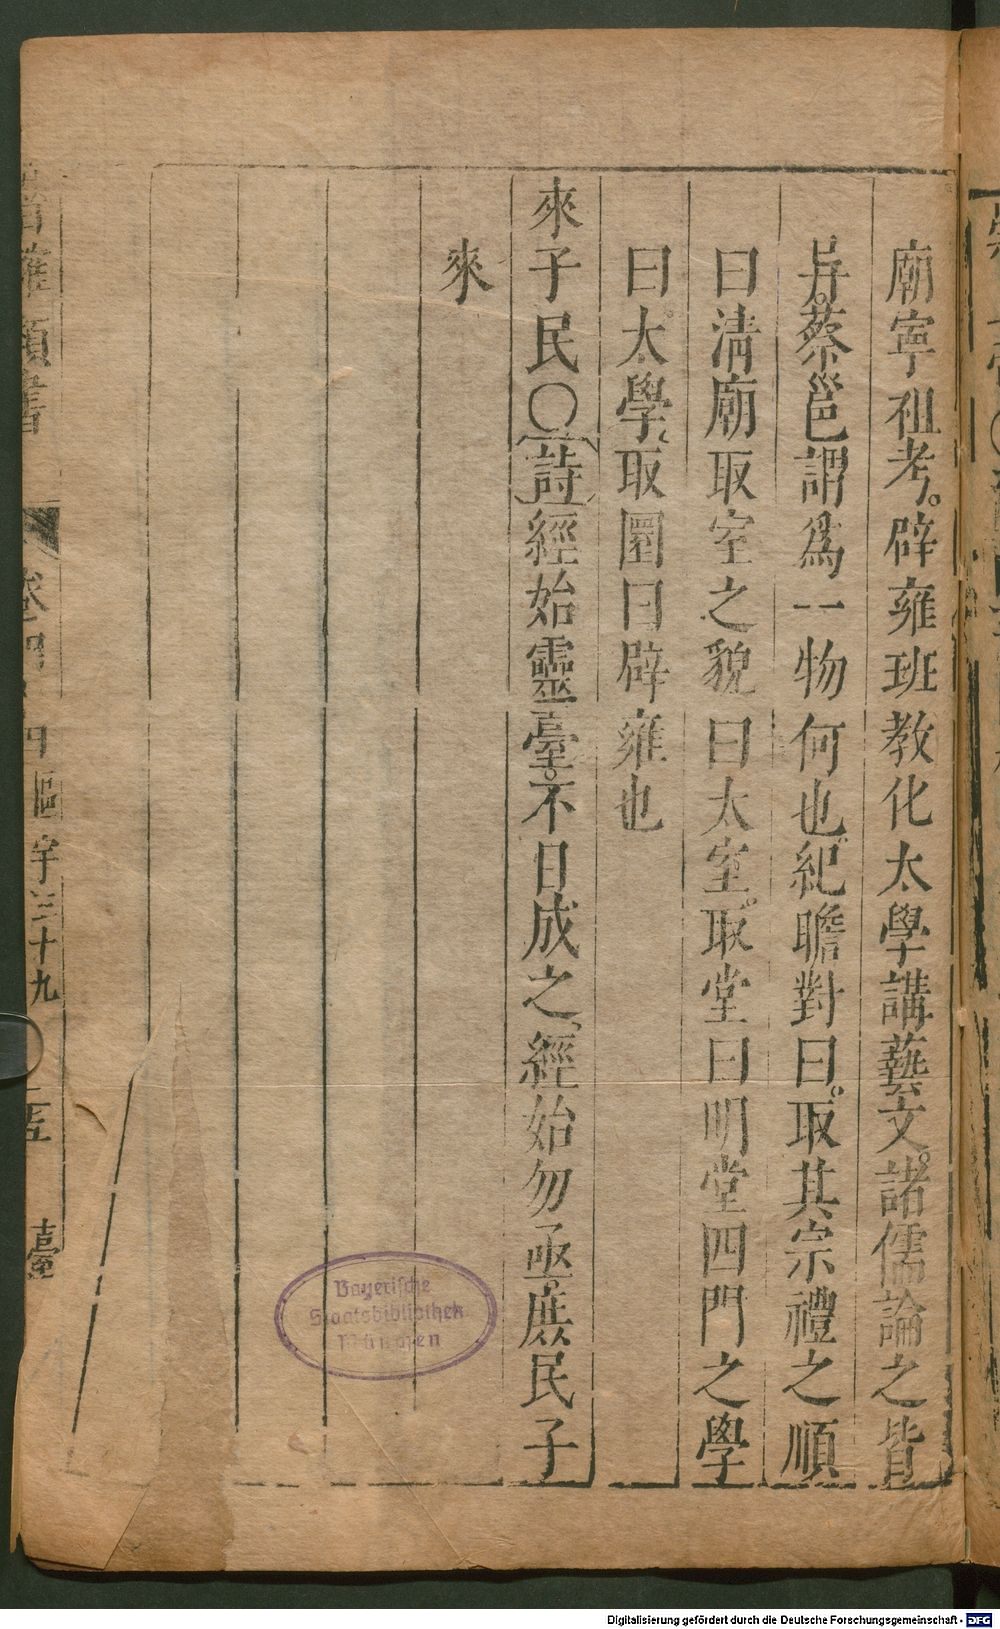 廟寧祖考。辟雍班教化太學講藝文。諸儒論之皆
异。蔡邕謂爲一物何也。紀瞻對曰。取其宗禮之順
曰清廟取室之貌曰太室。取堂曰明堂四門之學
曰太學、取圜曰辟雍也
來子民〇詩經始靈臺。不日成之、經始勿亟。庶民子
來
類書
區宇三十九
臺
Bayerische
Staatsbibliothek
München
Digitalisierung gefördert durch die Deutsche Forschungsgemeinschaft - DFG